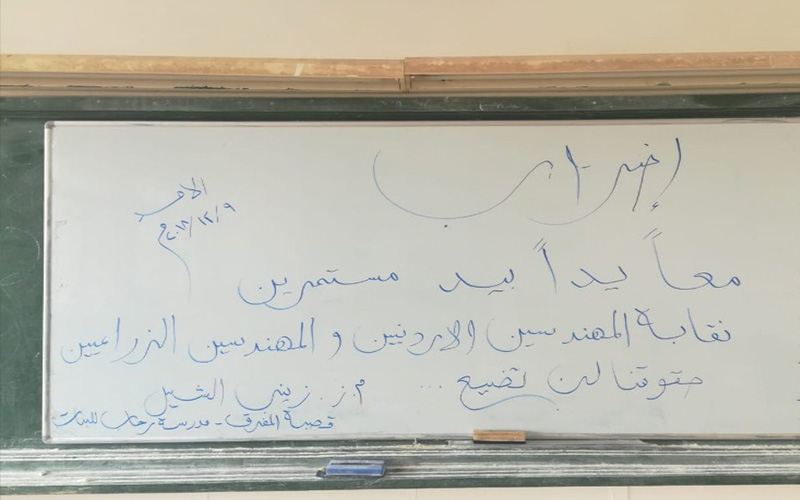 إضراب
الاحد
٢٠١٨/١٢/٩م
معاً يداً بيد مستمرين
نقابة المهندسين الاردنيين و المهندسين الزراعيين
حقوقنا لن تضيع ...
م.ز. زيني الشبيل
قصبة المفرق - مدرسة رحاب للبنات